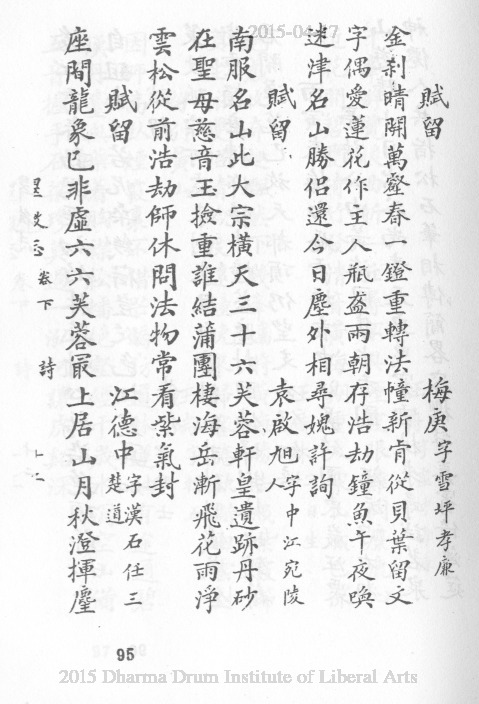 2015-04-17
賦留
梅庚字雪坪孝廉
金刹晴開萬壑春一鐙重轉法幢新肯從貝葉留文
字偶愛蓮花作主人瓶盋兩朝存浩劫鐘魚午夜喚
迷津名山勝侶還今日塵外相尋媿許詢
賦留
袁啟旭字中江宛陵人
南服名山此大宗橫天三十六芙蓉軒皇遺跡丹砂
在聖母慈音玉撿重誰結蒲團棲海岳漸飛花雨淨
雲松從前浩劫師休問法物常看紫氣封
賦留
江德中字漢石任三楚道
座間龍象已非虛六六芙蓉最上居山月秋澄揮麈
卷下
詩
95
2015 Dharma Drum Institute of Liberal Arts